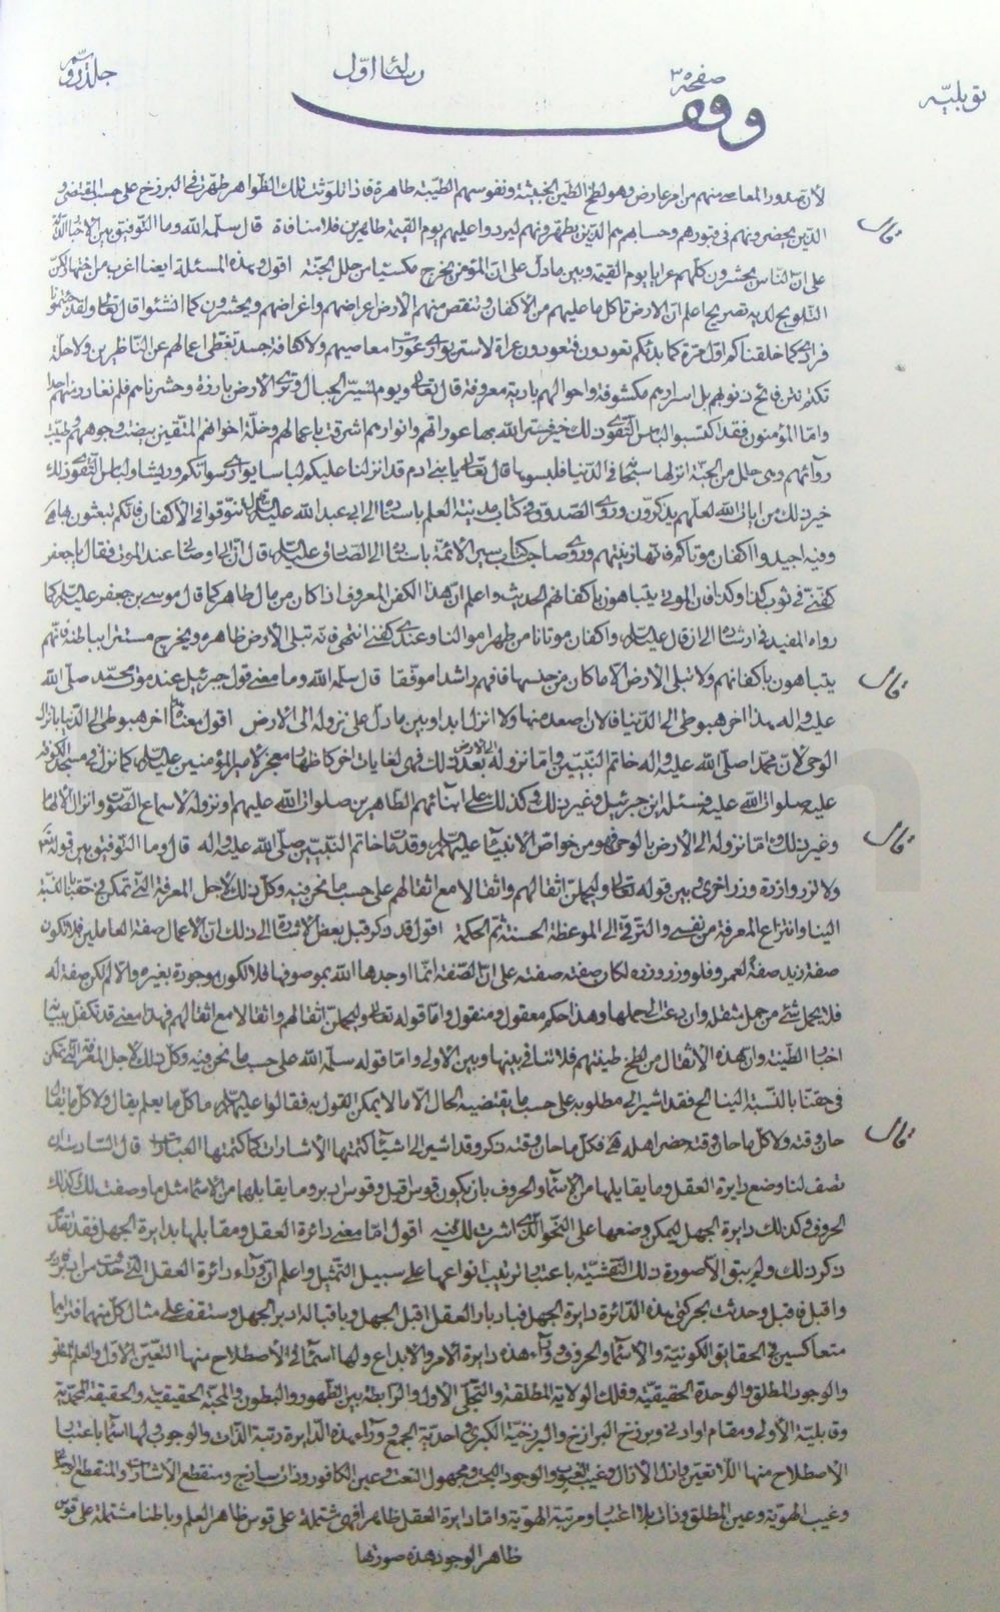 توبلیّه
صفحه ۳
رسالهٔ اوّل
جلد دوّم
وقف
لان صدور المعاصى منهم من امر عارض وهو لطخ الطين الخبيثة ونفوسهم الطيّبة طاهرة فاذا تلوّثت تلك الظواهر طهّرت فى البرزخ على حسب المقتضى و
الذين يحضرونهم فى قبورهم وحسابهم هم الذين يطهّرونهم ليردوا عليهم يوم القيمة طاهرين فلا منافاة قال سلّمه الله وما التوفيق بين الاخبار الدالّة
قال
على ان الناس يحشرون كلّهم عرايا يوم القيمة وبين ما دلّ على ان المؤمن يخرج مكسيّا من حلل الجنّة اقول وهذه المسئلة ايضا اغرب من اختها ولكن
التلويح لديه تصريح اعلم انّ الارض تاكل ما عليهم من الاكفان وتنقص منهم الارض اعراضهم واغراضهم ويحشرون كما انشئوا قال تعالى ولقد جئتمونا
فرادى كما خلقناكم اوّل مرّة كما بدئكم تعودون فتعودون عراة لا ستر يوارى عورات معاصيهم ولا كثافة جسد تغطى اعمالهم عن الناظرين ولا حلّة
تكتم نتن فائح ذنوبهم بل اسرارهم مكشوفة واحوالهم بادية معروفة قال تعالى ويوم نسيّر الجبال وترى الارض بارزة وحشرناهم فلم نغادر منهم احدا
وامّا المؤمنون فقد اكتسبوا لباس التقوى ذلك خير فستر الله بها عوراتهم وانوارهم اشرقت باعمالهم وخلّة اخوانهم المتّقين بيضت وجوههم طيّبة
روائهم وهى حلل من الجنّة انزلها سبحانه فى الدنيا فلبسوها قال تعالى يا بنى ادم قد انزلنا عليكم لباسا يوارى سواتكم وريشا ولباس التقوى ذلك
خير ذلك من ايات الله لعلّهم يذكّرون وروى الصدوق فى كتاب مدينة العلم باسناده الى ابى عبد الله عليه السلام تنوّقوا فى الاكفان فانّكم تبعثون بها
وفيه اجيدوا اكفان موتاكم فانّها زينتهم وروى صاحب كتاب سير الائمّة باسناده الى الصادق عليه السلام قال انّ ابى اوصانى عند الموت فقال يا جعفر
كفّنّى فى ثوب كذا وكذا فان الموتى يتباهون باكفانهم الحديث واعلم انّ هذا الكفن المعروف اذا كان من مال طاهر كما قال موسى بن جعفر عليه السلام كما
رواه المفيد فى ارشاده الى ان قال عليه السلام واكفان موتانا من طهر اموالنا وعندى كفنى انتهى فانّه تبلى الارض ظاهره ويخرج مستترا بباطنه فانّهم
يتباهون باكفانهم ولا تبلى الارض الا ما كان من جنسها فافهم راشدا موفّقا قال سلّمه الله وما معنى قول جبرئيل عند موت محمّد صلى الله
قال
عليه واله هذا اخر هبوطى الى الدنيا فالان اصعد منها ولا انزل ابدا وبين ما دلّ على نزوله الى الارض اقول معناه اخر هبوطى الى الدنيا بانزال
الوحى لان محمّدا صلى الله عليه واله خاتم النبيّين وامّا نزوله الى الارض بعد ذلك فهى لغايات اخر كاظهار معجز لامير المؤمنين عليه السلام كما نزل فى مسجد الكوفة
عليه صلوات الله عليه فسئله اين جبرئيل وغير ذلك وكذلك على ابنائهم الطاهرين صلوات الله عليهم او نزوله لاسماع الصوت وانزال الالهام
وغير ذلك وامّا نزوله الى الارض بالوحى فهو من خواصّ الانبياء عليهم السلام وقد مات خاتم النبيّين صلى الله عليه واله قال وما التوفيق بين قوله تعالى
قال
ولا تزر وازرة وزر اخرى وبين قوله تعالى وليحملنّ اثقالهم واثقالا مع اثقالهم على حسب ما نحن فيه وكلّ ذلك لاجل المعرفة التى تمكن فى حقّنا بالنسبة
الينا وانتزاع المعرفة من نفسى والترقى الى الموعظة الحسنة ثم الحكمة اقول قد ذكر قبل بعض الاشارة الى ذلك انّ الاعمال صفة العاملين فلا تكون
صفة زيد صفة لعمرو فلو وزر وزره لكان صفته صفته على انّ الصفة انّما اوجدها الله بموصوفها فلا تكون موجودة بغيره والا لم تكن صفة له
فلا يحمل شئ من حمل مثقلة وان دعت الى حملها وهذا حكم معقول ومنقول وامّا قوله تعالى وليحملنّ اثقالهم واثقالا مع اثقالهم فهذا معنى قد تكفّل ببيانها
اخبار الطينة وان هذه الاثقال من لطخ طينتهم فلا تنافى بينها وبين الاولى وامّا قوله سلّمه الله على حسب ما نحن فيه وكلّ ذلك لاجل المعرفة التى تمكن
فى حقّنا بالنسبة الينا الخ فقد اشير الى مطلوبه على حسب ما يقتضيه الحال الا ما لا يمكن القول به فقالوا عليهم السلام ما كلّ ما يعلم يقال ولا كلّ ما يقال
حان وقته ولا كلّ ما حان وقته حضر اهله فكلّ ما حان وقته ذكر وقد اشير الى اشياء كتمتها الاشارات كما كتمتها العبارات قال السادسة ان
قال
تصف لنا وضع دايرة العقل وما يقابلها من الاسماء والحروف بان يكون قوس اقبل وقوس ادبر وما يقابلها من الاسماء مثل ما وصفت لك كذلك
الحروف وكذلك دايرة الجهل ليمكن وضعها على النحو الذى اشرت لك فيه اقول امّا معنى دائرة العقل ومقابلها بدايرة الجهل فقد تقدّم
ذكر ذلك ولم يبق الا صورة ذلك النقشيّة باعتبار ترتيب انواعها على سبيل التمثيل واعلم ان وراء دائرة العقل التى حدثت من ادبر
واقبل فاقبل وحدثت بحركتى هذه الدائرة دايرة الجهل فبادبار العقل اقبل الجهل وباقباله ادبر الجهل وستقف على مثال كلّ منهما فتراهما
متعاكسين فى الحقايق الكونيّة والاسماء والحروف وراء هذه دايرة الامر والابداع ولها اسماء فى الاصطلاح منها التعيّن الاوّل والعلم المطلق
والوجود المطلق والوحدة الحقيقيّة وفلك الولاية المطلقة والتجلّى الاوّل والرابطة بين الظهور والبطون والمحبّة الحقيقيّة والحقيقة المحمّديّة
وقابليّة الاولى ومقام او ادنى وبرزخ البرازخ والبرزخيّة الكبرى واحديّة الجمع ووراء هذه الدايرة رتبة الذات والوجوب لها اسماء باعتبار
الاصطلاح منها اللا تعيّن وازل الازال وغيب الغيوب والوجود البحت ومجهول النعت وعين الكافور وذات ساذج ومنقطع الاشارات والمنقطع الوجدانى
وغيب الهويّة وعين المطلق وذات بلا اعتبار ومرتبة الهويّة وامّا دايرة العقل ظاهرا فهى مشتملة على قوس ظاهر العلم وباطنا مشتملة على قوس
ظاهر الوجود هذه صورتها